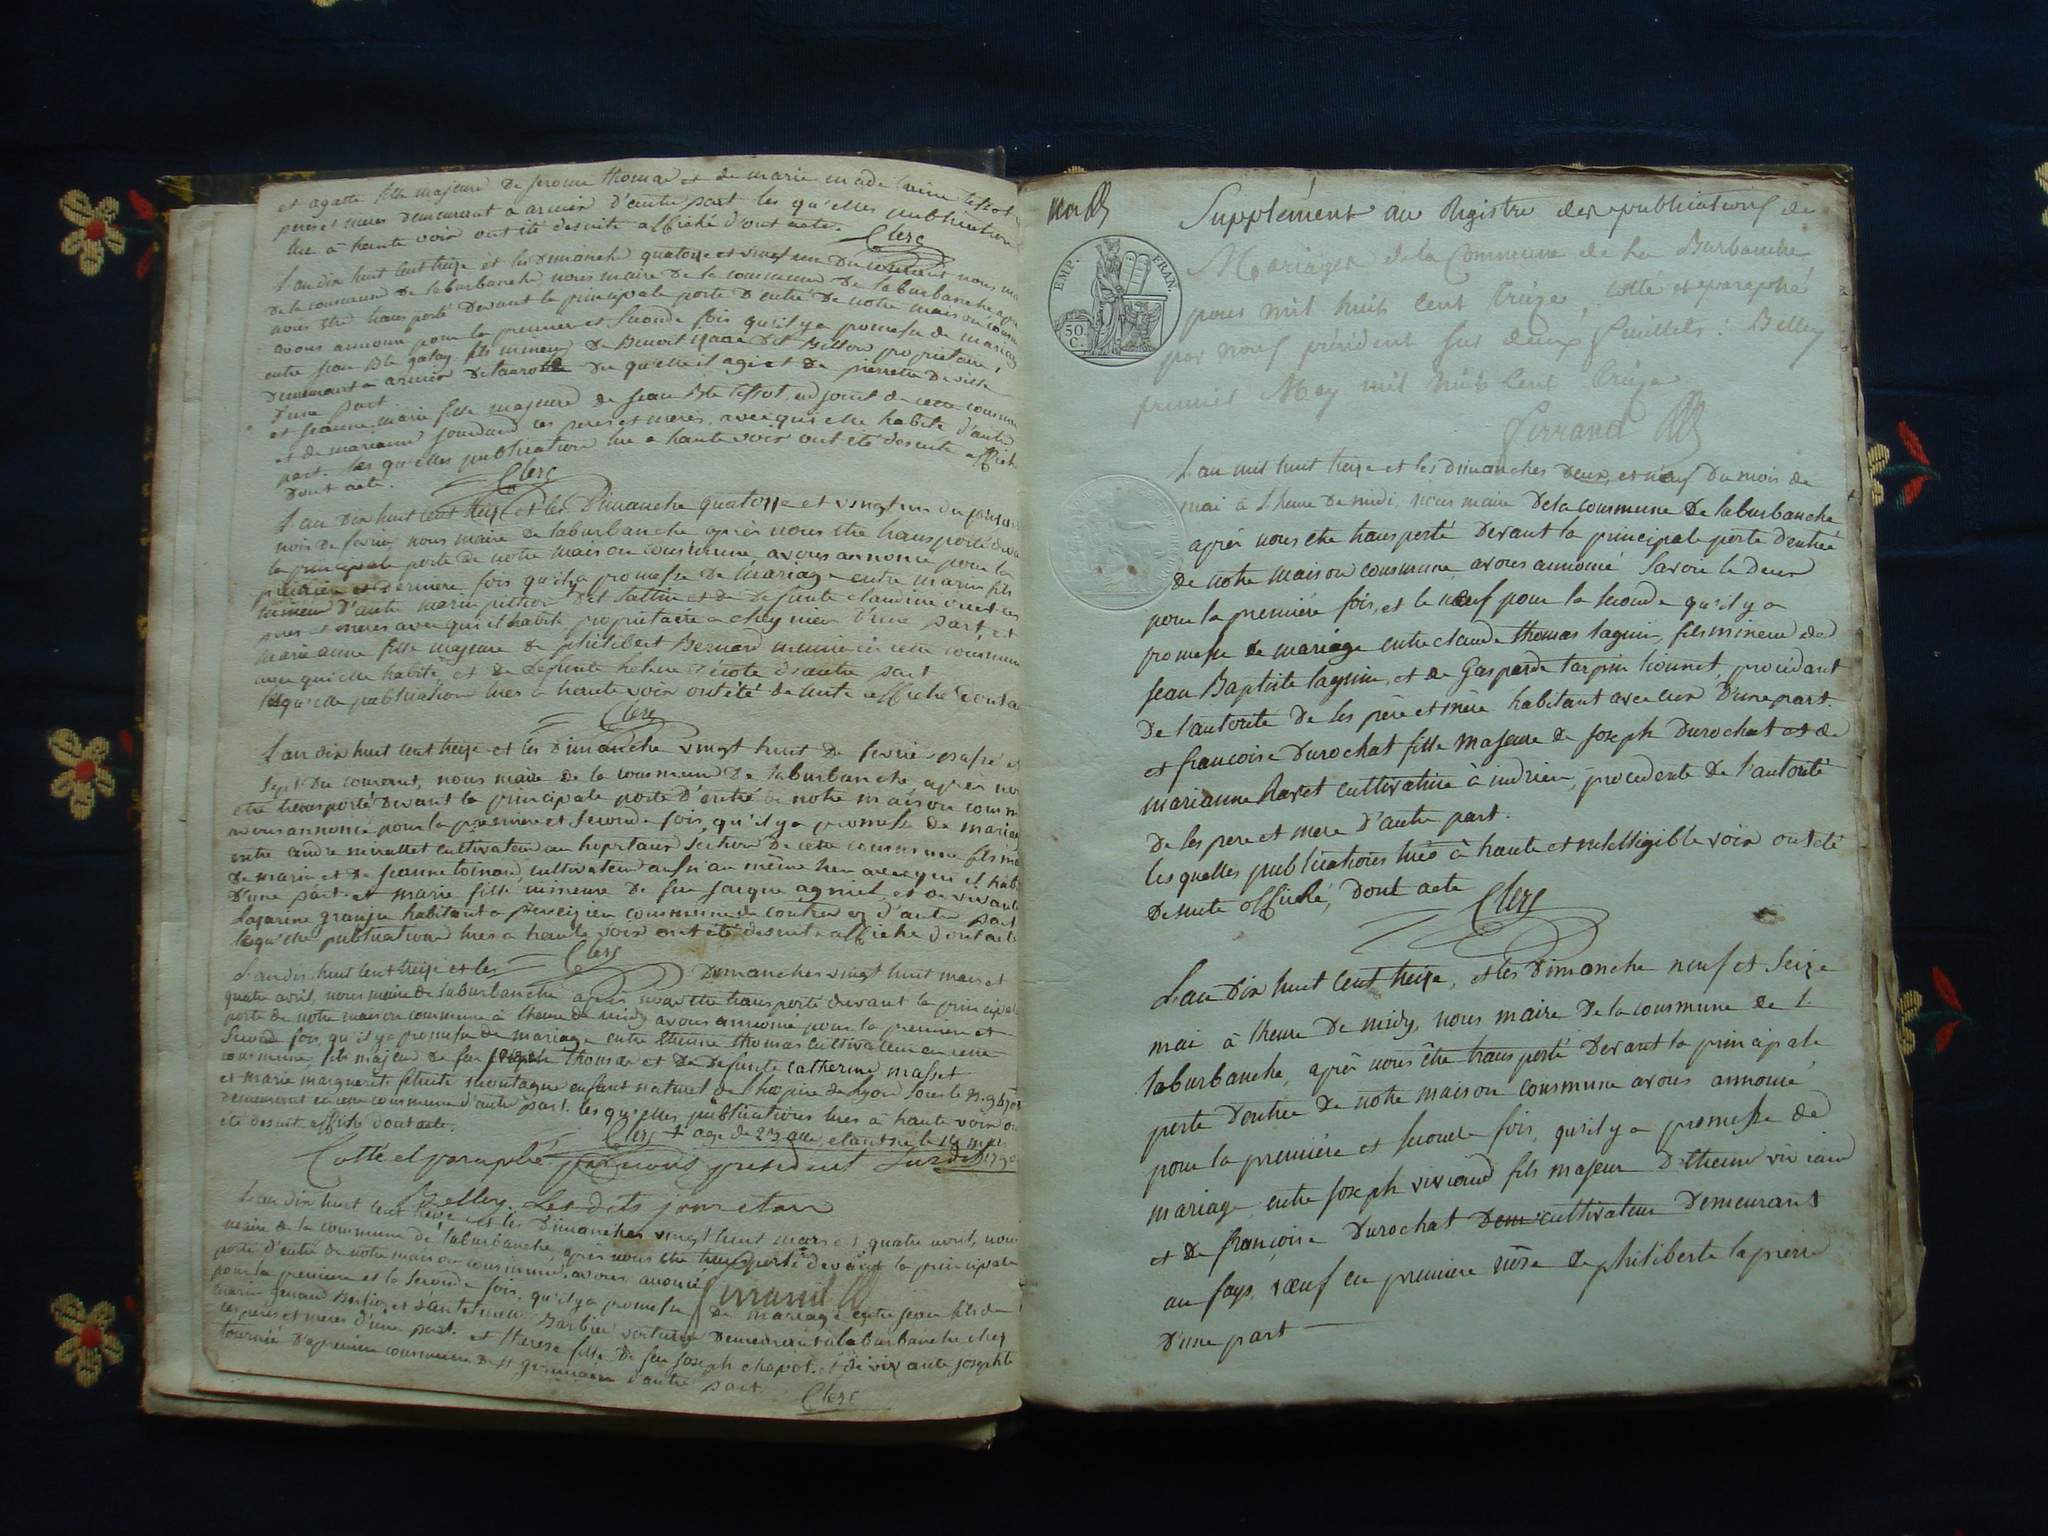 et agathe fille majeure de jerome thomas et de marie madelaine tessot
peres et meres demeurant a armix d'autre part les qu'elles publication
lue à haute voix ont été desuite affiché d'ont acte.
Clerc
L'an dix huit cent treize et les dimanche quatorze et vingt un du courant nous
de la commune de laburbanche nous maire de la commune de laburbanche après
nous etre transporté devant la principale porte d'entré de notre maison comm
avons annoncé pour la premier et seconde fois qu'il y a promesse de mariage
entre jean Bte gatay fils mineur de Benoit dit Billon proprietaire,
demeurant a armix de l'autorité du quelle il agit et de pierrette
d'une part
et jeanne marie fille majeure de jean Bte tessot, adjoint de cette commune
et de marianne jourdand ses peres et meres, avec qui elle habite d'autre
part. les qu'elles publication lue a haute voix ont été desuite affiché
dont acte.
Clerc
L'an dix huit cent treize et les Dimanche quatorze et vingt un du présent
mois de fevrier nous maire de laburbanche après nous etre transporté deva
la principale porte de notre maison commune avons annoncé pour la
première et derniere fois qu'il y a promesse de mariage entre marin fils
mineur d'autre marin pithion dit sattin et de defunte claudine
peres et meres avec qui il habite proprietaire a cheynieu d'une part, et
marie anne fille majeure de philibert Bernard meunier en cette commune
avec qui elle habite et de defunte helene d'autre part
lesqu'elle publication lues à haute voix ont été de suite affiché dont a
Clerc
L'an dix huit cent treize et les dimanche vingt huit de fevrier passé et
sept du courant, nous maire de la commune de laburbanche, après no
etre transporté devant la principale porte d'entré de notre maison comm
avons annoncé pour la premiere et seconde fois, qu'il y a promesse de mariag
entre andré mirallet cultivateur au hopitaux section de cette commune fils
de marin et de jeanne toinard, cultivateur aussi au même lieu avec qui il habi
d'une part et marie fille mineure de feu jacque agniel et de vivante
lazarine granju habitant a commune de contrevoz d'autre part
lesqu'elle publication lues a haute voix ont été desuite affiche d'ont acte
Clerc
L'an dix huit cent treize et les Dimanches vingt huit mars et
quatre avril, nous maire de laburbanche après nous etre transporté devant la principal
porte de notre maison commune à lheure de midy avons annoncé pour la premiere et
seconde fois, qu'il y a promesse de mariage entre etienne thomas cultivateur en cette
commune fils majeur de feu joseph thomas et de defunte catherine masset
et marie marguerite montagne enfant naturel de l'hospice de Lyon sous le n.
demeurant en cette commune d'autre part. les qu'elles publications lues à haute voix on
été desuite affiche dont acte.
Clerc + age de 23 ans
Cotté et paraphé par nous president
Belley. Les dits jour et an
L'an dix huit cent treize et les dimanches vingt huit mars et quatre avril, nous
maire de la commune de laburbanche, après nous etre transporté devant la principale
porte d'entré de notre maison commune, avons anoncé
Ferrand
pour la premiere et la seconde fois, qu'il y a promesse de mariage entre jean fils de
marin et d'antelmette Barbier voiturier demeurant a laburbanche chez
ses peres et meres d'une part. et therese fille de feu joseph chapot et de vivante josephte
tournié d'apremieu commune de st germain d'autre part
Clerc
Supplément au Registre des publications de
Mariages de la Commune de La Burbanche
EMP. FRAN.
50. C.
pour mil huit cent treize, cotté et paraphé
par nous président sur deux feuillets: Belley
premier May mil huit cent treize
Ferrand
L'an mil huit treize et les dimanches deux, et neuf du mois de
mai à l'heure de midi, nous maire de la commune de laburbanche
après nous etre transporté devant la principale porte d'entrée
de notre maison commune avons annoncé savoir le deux
pour la première fois, et le neuf pour la seconde qu'il y a
promesse de mariage entre claude thomas laguin, fils mineur de
jean Baptiste laguin, et de Gasparde tarpin lionnet, procédant
de l'autorité de ses père et mère habitant avec eux d'une part.
et françoise Durochat fille majeure de joseph Durochat et de
marianne Ravet cultivatrice à indrieu, procédente de l'autorité
de ses pere et mere d'autre part.
les quelles publications lues à haute et intelligible voix ont été
desuite affiché, dont acte
Clerc
L'an dix huit cent treize, et les dimanche neuf et seize
mai à lheure de midy, nous maire de la commune de l
laburbanche, après nous être transporté devant la principale
porte d'entrée de notre maison commune avons annoncé,
pour la première et seconde fois, qu'il y a promesse de
mariage entre joseph viviand fils majeur d'etienne viviand
et de françoise Durochat dem cultivateur demeurant
au fays, vœuf en première nôse de philiberte lapierre
d'une part